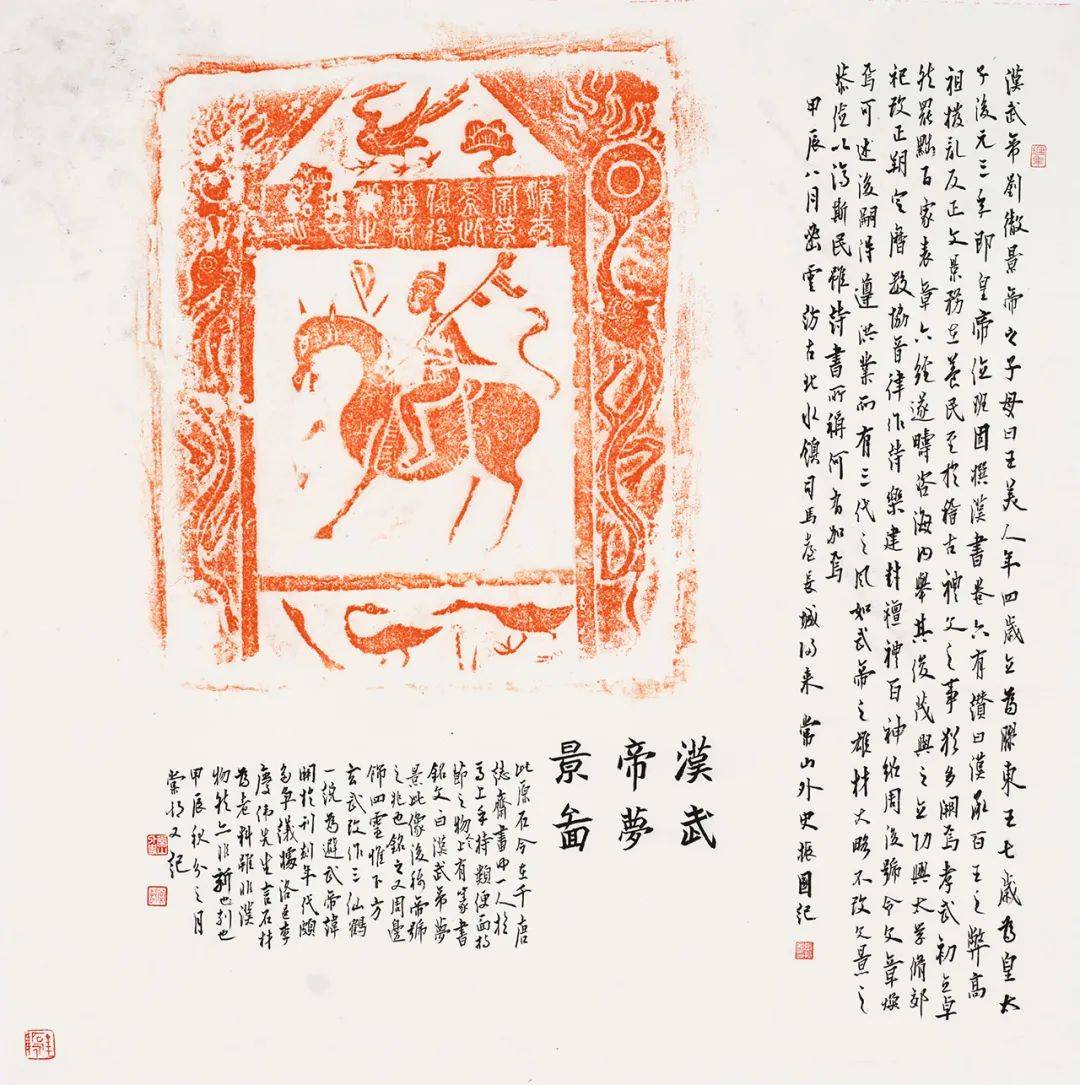 漢武帝劉徹景帝之子母曰王美人年四歲立為膠東王七歲為皇太
子後元三年即皇帝位班固撰漢書卷六有讚曰漢承百王之弊高
祖撥亂反正文景務在養民至於稽古禮文之事猶多闕焉孝武初立卓
然罷黜百家表章六經遂疇咨海內舉其俊茂興之立功興太學脩郊
祀改正朔定曆數協音律作詩樂建封禪禮百神紹周後號令文章煥
焉可述後嗣得遵洪業而有三代之風如武帝之雄材大略不改文景之
恭儉以濟斯民雖詩書所稱何有加焉
甲辰八月密雲訪古北水鎮司馬臺長城得來 常山外史振國紀
漢武
帝夢
景此
像後
稱帝
號之
兆也
銘之
漢武
帝夢
景啚
此原石今在千唐
誌齋畫中一人於
馬上手持類便面持
節之物於上有篆書
銘文曰漢武帝夢
景此像後稱帝號
之兆也銘之又周邊
飾四靈惟下方
玄武改作三仙鶴
一說為避武帝諱
關於刊刻年代頗
多爭議據洛邑李
彥偉先生言石材
為老料雖非漢
物於亦非新也刻也
甲辰秋分之月
又紀